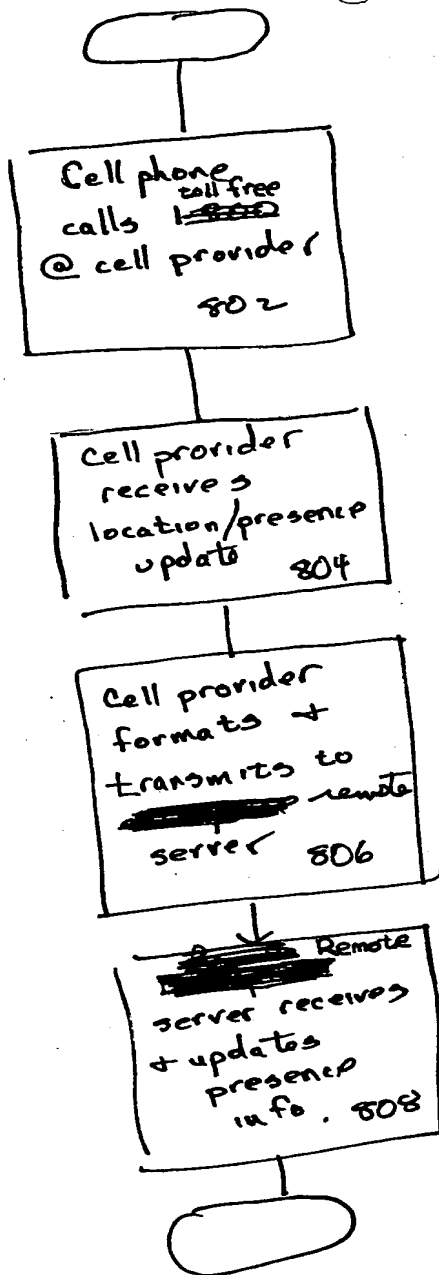 Cell phone
toll free
calls 1-800
@ cell provider
802
Cell provider
receives
location/presence
update 804
Cell provider
formats +
transmits to
remote
server 806
Remote
server receives
+ updates
presence
info. 808